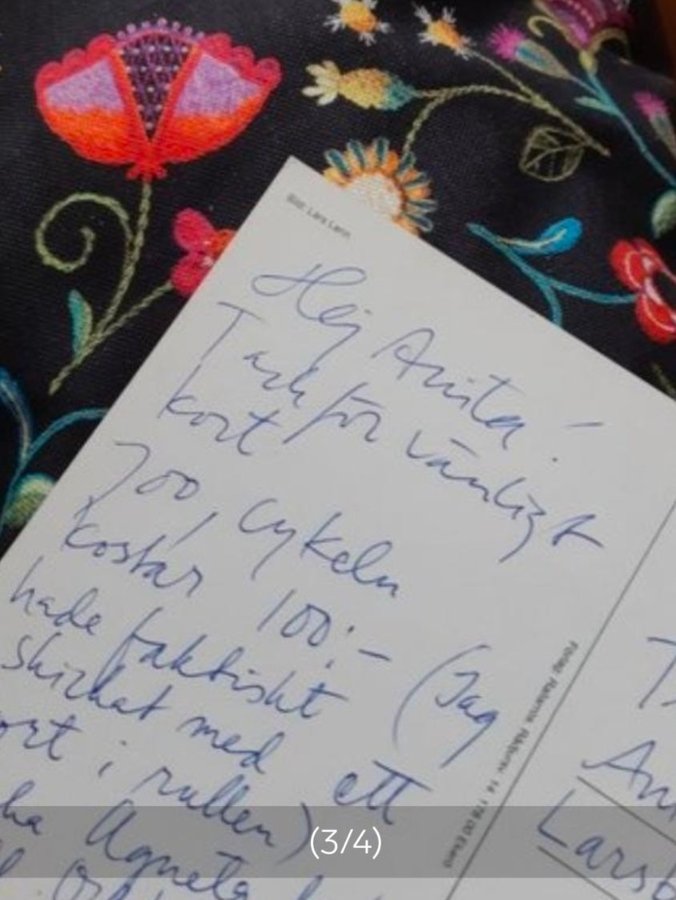 Bild: Lars Lerin
Hej Anita!
Tack för vänligt
kort
Joo, Cykeln
kostar 100:- (Jag
hade faktiskt
skickat med ett
ort i rullen)
Agneta
Förlag 14 178 00 Ekerö
An
Larsb
(3/4)